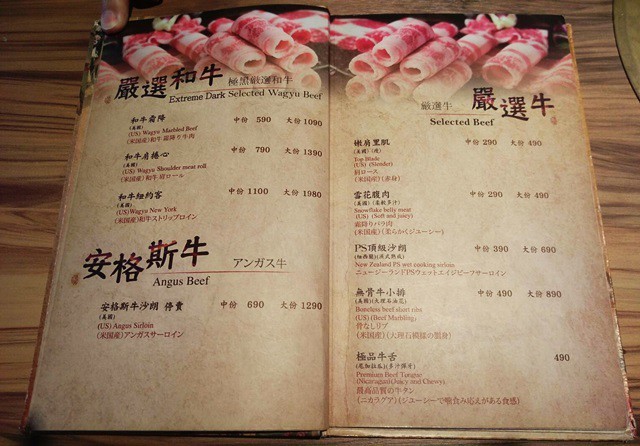 嚴選和牛 極黑嚴選和牛
Extreme Dark Selected Wagyu Beef
和牛霜降 中份 590 大份 1090
(美國)
(US) Wagyu Marbled Beef
(米国産) 和牛霜降り牛肉
和牛肩捲心 中份 790 大份 1390
(美國)
(US) Wagyu Shoulder meat roll
(米国産) 和牛 肩ロール
和牛紐約客 中份 1100 大份 1980
(美國)
(US) Wagyu New York
(米国産) 和牛ストリップロイン
安格斯牛 アンガス牛
Angus Beef
安格斯牛沙朗 停賣 中份 690 大份 1290
(美國)
(US) Angus Sirloin
(米国産) アンガスサーロイン
厳選牛 嚴選牛
Selected Beef
嫩肩里肌 中份 290 大份 490
(美國) (瘦)
Top Blade
(US) (Slender)
肩ロース
(米国産) (赤身)
雪花腹肉 中份 290 大份 490
(美國) (柔軟多汁)
Snowflake belly meat
(US) (Soft and juicy)
霜降りバラ肉
(米国産) (柔らかくジューシー)
PS頂級沙朗 中份 390 大份 690
(紐西蘭) (濕式熟成)
New Zealand PS wet cooking sirloin
ニュージーランドPSウェットエイジビーフサーロイン
無骨牛小排 中份 490 大份 890
(美國) (大理石油花)
Boneless beef short ribs
(US) (Beef Marbling)
骨なしリブ
(米国産) (大理石模様の脂身)
極品牛舌 490
(尼加拉瓜) (多汁彈牙)
Premium Beef Tongue
(Nicaragua) (Juicy and Chewy)
最高品質の牛タン
(ニカラグア) (ジューシーで噛み応えがある食感)